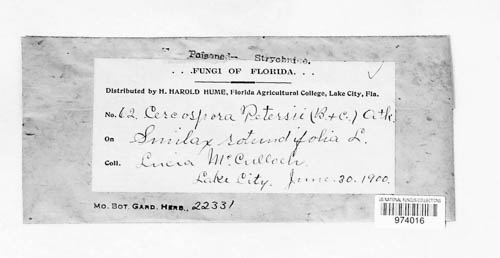 Poisoned— Strychnine.
. . . FUNGI OF FLORIDA. . . .
Distributed by H. HAROLD HUME, Florida Agricultural College, Lake City, Fla.
No. 62. Cercospora Petersii (B. & C.) Atk.
On Smilax rotundifolia L.
Coll. Lucia McCulloch.
Lake City. June. 30. 1900.
MO. BOT. GARD. HERB., 22331
US NATIONAL FUNGUS COLLECTIONS
974016